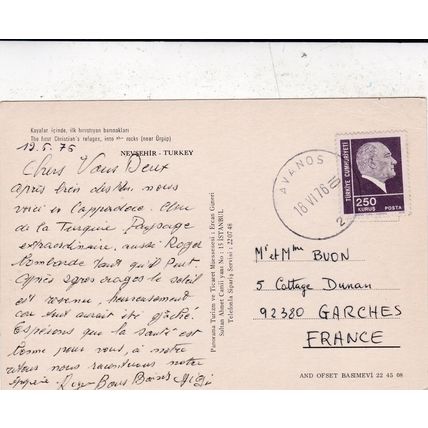 Kayalar içinde, ilk hıristiyan barınakları
The first Christian's refuges, into the rocks (near Ürgüp)
NEVŞEHİR - TURKEY
19.5.76
Chers Vous Deux
après bien des km. nous
voici en Cappadoce.
de la Turquie. Paysage
extraordinaire, aussi Roger
bombarde tant qu'il peut
Après gros orages le soleil
est revenu, heureusement
car tout aurait été gâché.
Espérons que la santé est
bonne pour vous, à notre
retour nous raconterons notre
Bons Baisers
Panorama Turizm ve Ticaret Müessesesi : Ercan Güneri
Sultan Ahmet Camii yanı No : 15 İSTANBUL
Telefonla Sipariş Servisi : 22 07 48
AVANOS
18 VI 76
2
TÜRKİYE CUMHURİYETİ
250
KURUŞ POSTA
Mr et Mme BUON
5 Cottage Dunan
92380 GARCHES
FRANCE
AND OFSET BASIMEVİ 22 45 08